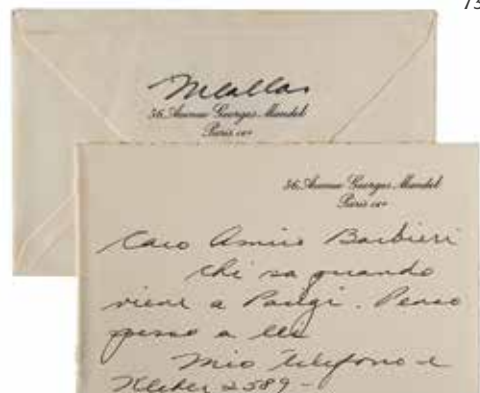 73
MCallas
36 Avenue Georges Mandel
Paris XVIe
36 Avenue Georges Mandel
Paris XVIe
Caro Amico Barbieri
chi sa quando
viene a Parigi. Penso
spesso a lei
Mio telefono e
Kleber 2589-